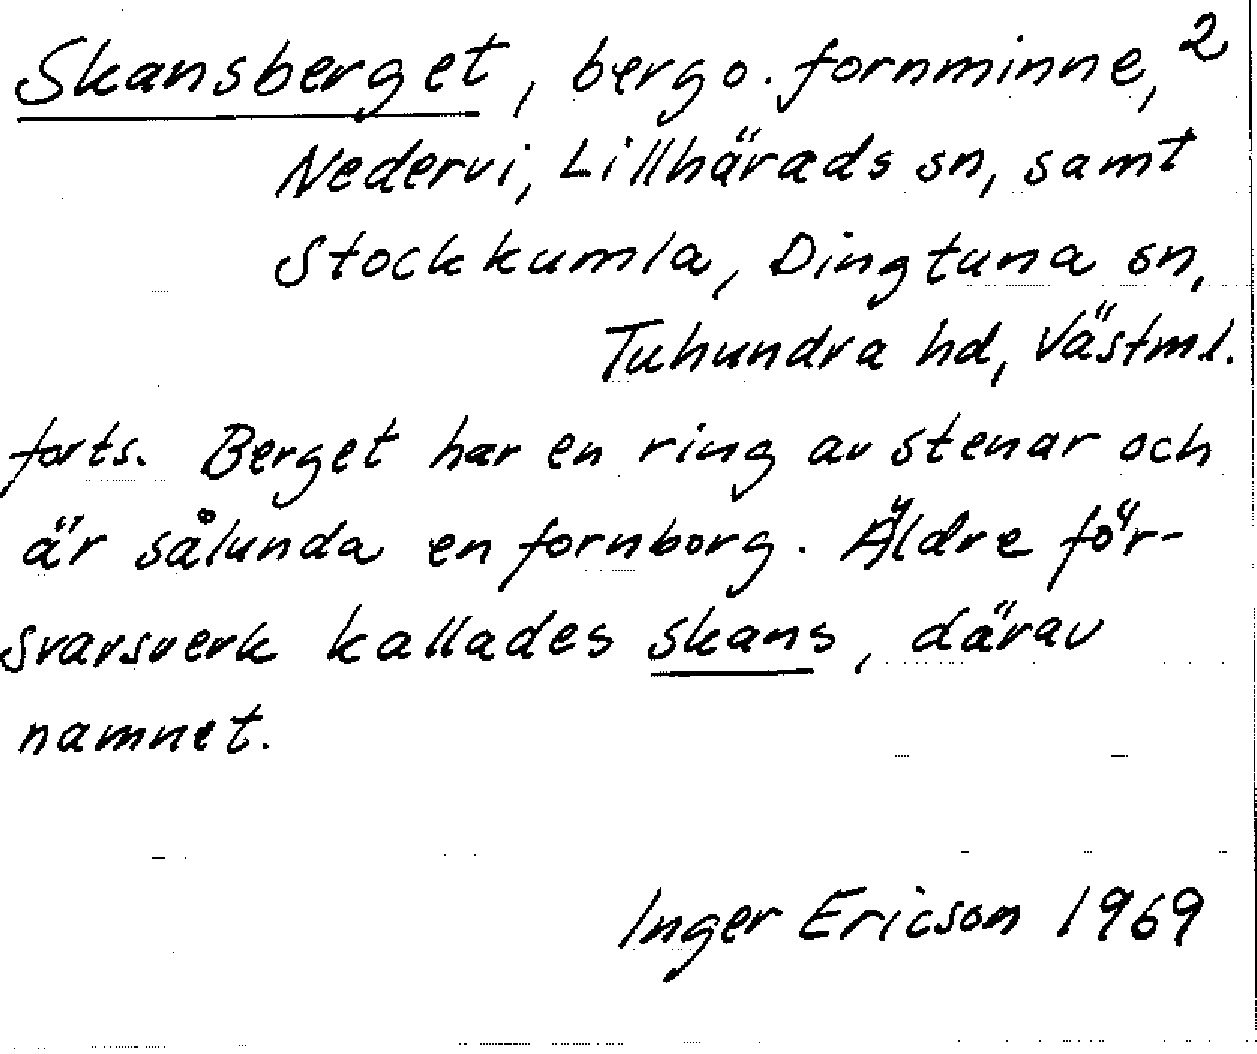 Skansberget, berg o. fornminne, 2
Nedervi, Lillhärads sn, samt
Stockkumla, Dingtuna sn,
Tuhundra hd, Västml.
forts. Berget har en ring av stenar och
är sålunda en fornborg. Äldre för-
svarsverk kallades skans, därav
namnet.
Inger Ericson 1969